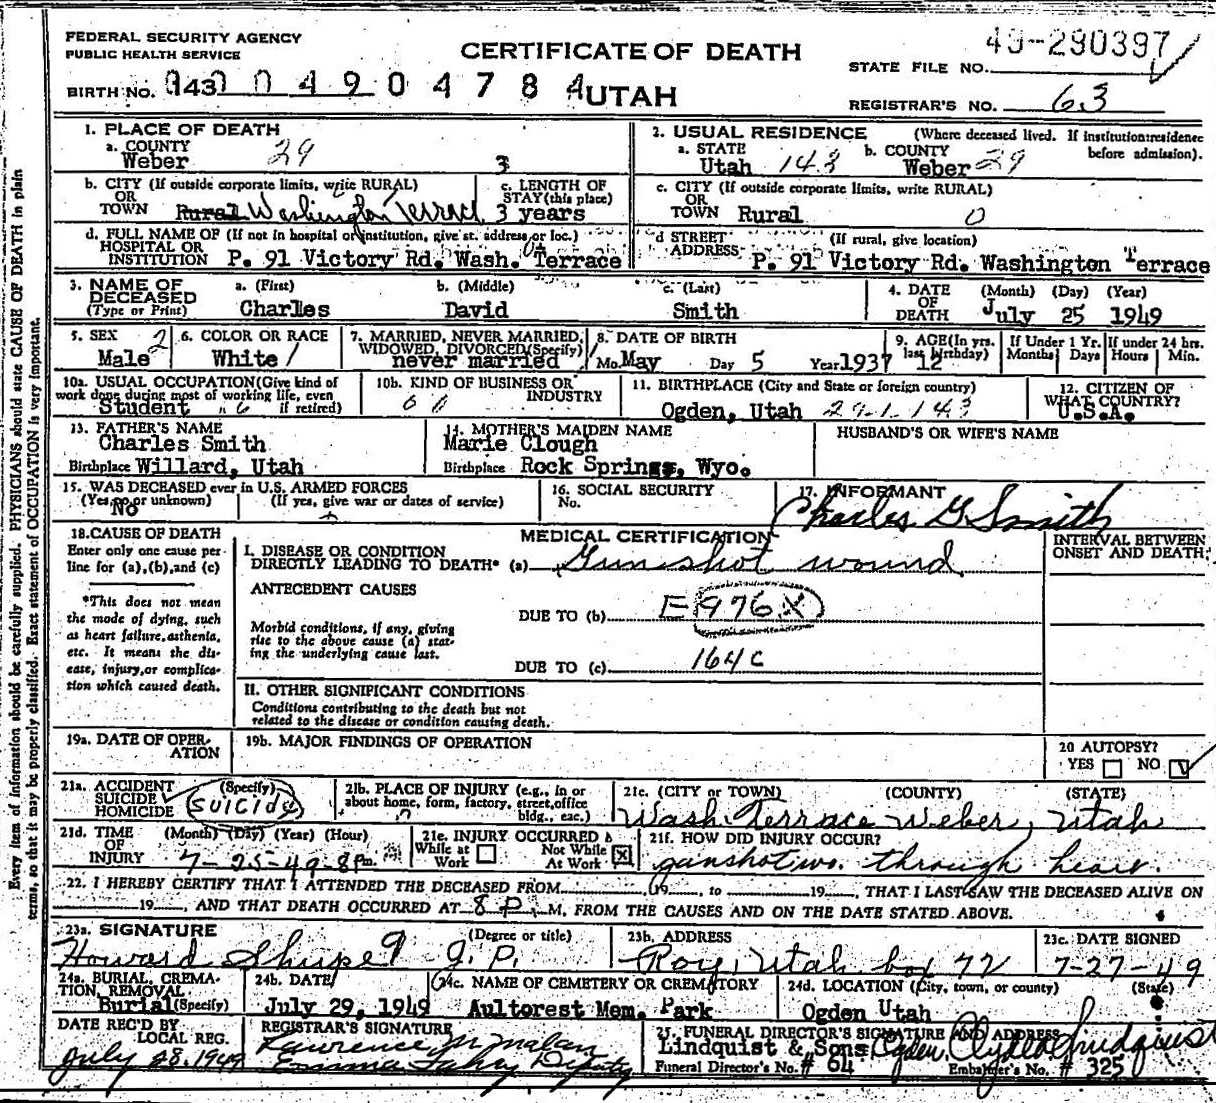 FEDERAL SECURITY AGENCY
PUBLIC HEALTH SERVICE
CERTIFICATE OF DEATH
49-290397
STATE FILE NO.
BIRTH NO. 143 0 4 9 0 4 7 8 4 UTAH
REGISTRAR'S NO. 63
1. PLACE OF DEATH
a. COUNTY
Weber 29 3
2. USUAL RESIDENCE (Where deceased lived. If institution: residence before admission).
a. STATE b. COUNTY
Utah 143 Weber 29
b. CITY (If outside corporate limits, write RURAL)
OR
TOWN Rural Washington Terrace
c. LENGTH OF
STAY (this place)
3 years
c. CITY (If outside corporate limits, write RURAL)
OR
TOWN Rural 0
d. FULL NAME OF (If not in hospital or institution, give st. address or loc.)
HOSPITAL OR
INSTITUTION P. 91 Victory Rd. Wash. Terrace
d STREET (If rural, give location)
ADDRESS P. 91 Victory Rd. Washington Terrace
3. NAME OF
DECEASED
(Type or Print)
a. (First) b. (Middle) c. (Last)
Charles David Smith
4. DATE (Month) (Day) (Year)
OF
DEATH July 25 1949
5. SEX 2
Male
6. COLOR OR RACE
White 1
7. MARRIED, NEVER MARRIED,
WIDOWED, DIVORCED (Specify)
never married
8. DATE OF BIRTH
Mo. May Day 5 Year 1937
9. AGE (In yrs.
last birthday)
12
If Under 1 Yr.
Months Days
If under 24 hrs.
Hours Min.
10a. USUAL OCCUPATION (Give kind of
work done during most of working life, even
if retired)
Student
10b. KIND OF BUSINESS OR
INDUSTRY
11. BIRTHPLACE (City and State or foreign country)
Ogden, Utah 29-1-143
12. CITIZEN OF
WHAT COUNTRY?
U.S.A.
13. FATHER'S NAME
Charles Smith
Birthplace Willard, Utah
14. MOTHER'S MAIDEN NAME
Marie Clough
Birthplace Rock Springs, Wyo.
HUSBAND'S OR WIFE'S NAME
15. WAS DECEASED ever in U.S. ARMED FORCES
(Yes, no, or unknown) (If yes, give war or dates of service)
No
16. SOCIAL SECURITY
No.
17. INFORMANT
Charles G Smith
18. CAUSE OF DEATH
Enter only one cause per
line for (a), (b), and (c)
*This does not mean
the mode of dying, such
as heart failure, asthenia,
etc. It means the dis-
ease, injury, or complica-
tion which caused death.
MEDICAL CERTIFICATION
I. DISEASE OR CONDITION
DIRECTLY LEADING TO DEATH* (a) Gunshot wound
ANTECEDENT CAUSES
DUE TO (b) E976X
Morbid conditions, if any, giving
rise to the above cause (a) stat-
ing the underlying cause last.
DUE TO (c) 164c
II. OTHER SIGNIFICANT CONDITIONS
Conditions contributing to the death but not
related to the disease or condition causing death.
INTERVAL BETWEEN
ONSET AND DEATH
19a. DATE OF OPER-
ATION
19b. MAJOR FINDINGS OF OPERATION
20 AUTOPSY?
YES NO ✓
21a. ACCIDENT (Specify)
SUICIDE
HOMICIDE
Suicide
21b. PLACE OF INJURY (e.g., in or
about home, form, factory, street, office
bldg., eac.)
21c. (CITY or TOWN) (COUNTY) (STATE)
Wash. Terrace Weber, Utah
21d. TIME (Month) (Day) (Year) (Hour)
OF
INJURY 7-25-49-8 Pm.
21e. INJURY OCCURRED
While at Work Not While At Work X
21f. HOW DID INJURY OCCUR?
gunshot wo. through heart.
22. I HEREBY CERTIFY THAT I ATTENDED THE DECEASED FROM 19 , to 19 , THAT I LAST SAW THE DECEASED ALIVE ON
19 , AND THAT DEATH OCCURRED AT 8 P. M., FROM THE CAUSES AND ON THE DATE STATED ABOVE.
23a. SIGNATURE (Degree or title)
Howard Shupe J.P.
23b. ADDRESS
Roy, Utah box 72
23c. DATE SIGNED
7-27-49
24a. BURIAL, CREMA-
TION, REMOVAL
Burial (Specify)
24b. DATE
July 29, 1949
24c. NAME OF CEMETERY OR CREMATORY
Aultorest Mem. Park
24d. LOCATION (City, town, or county) (State)
Ogden Utah
DATE REC'D BY
LOCAL REG.
July 28, 1949
REGISTRAR'S SIGNATURE
Lawrence M Malan
Emma Deputy
25. FUNERAL DIRECTOR'S SIGNATURE AND ADDRESS
Lindquist & Sons Ogden, Clyde Lindquist
Funeral Director's No. # 64 Embalmer's No. # 325
Every item of information should be carefully supplied. PHYSICIANS should state CAUSE OF DEATH in plain
terms, so that it may be properly classified. Exact statement of OCCUPATION is very important.